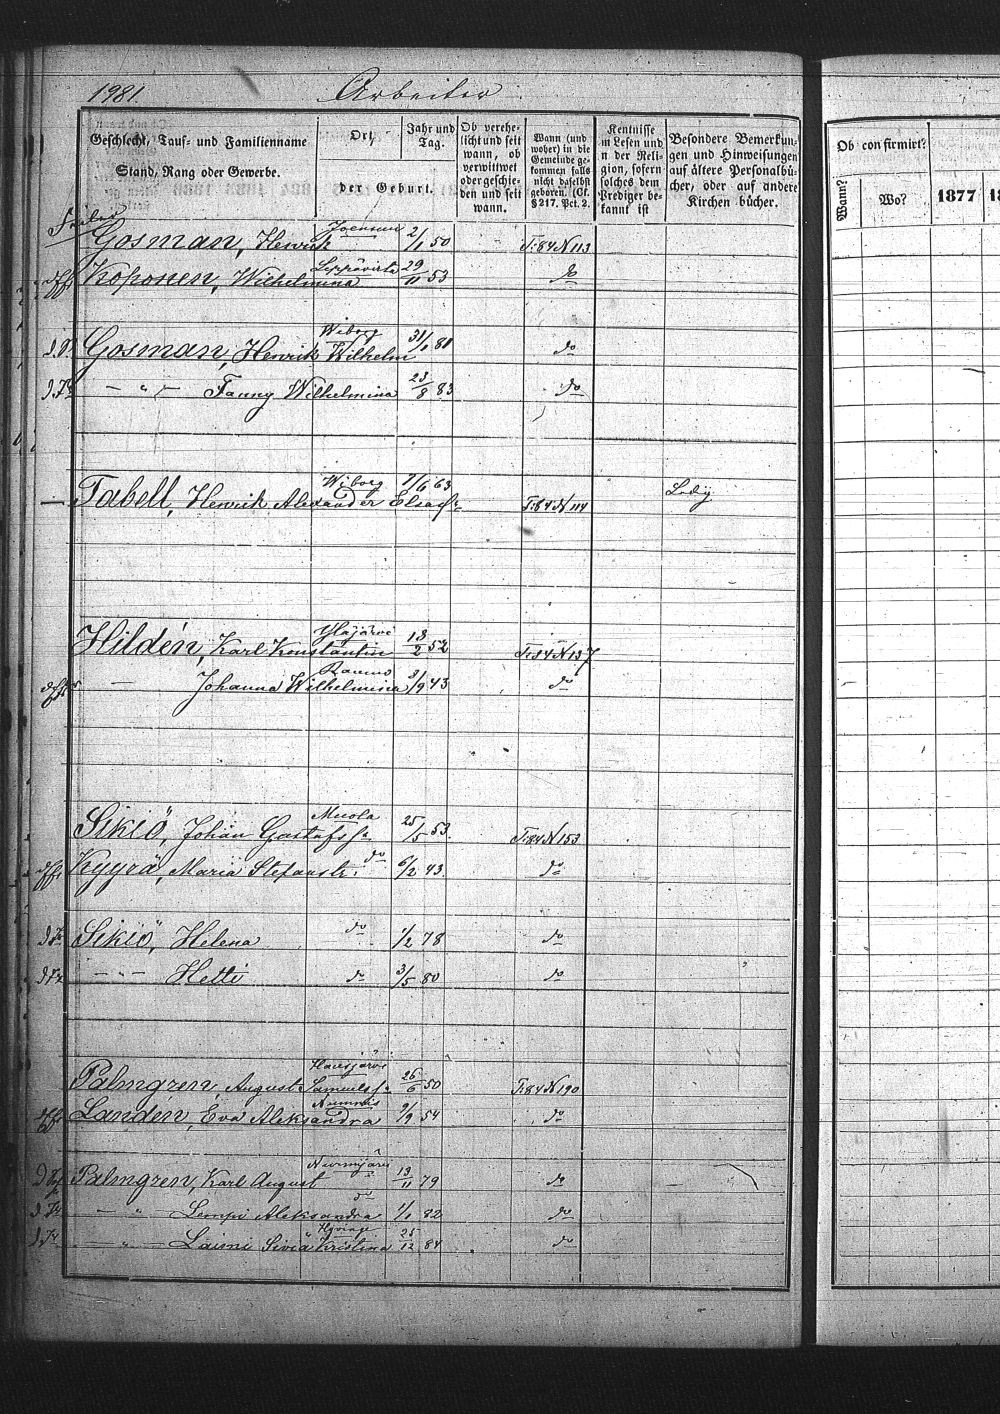 1981.
Arbeiter
Geschlecht, Tauf- und Familienname
Stand, Rang oder Gewerbe.
Ort,
der Geburt.
Jahr und
Tag.
Ob verehe-
licht und seit
wann, ob
verwittwet
oder geschie-
den und seit
wann.
Wann (und
woher) in die
Gemeinde ge-
kommen falls
nicht daselbst
geboren. (Cf.
§ 217. Pct. 2.
Kentnisse
im Lesen und
in der Reli-
gion, sofern
solches dem
Prediger be-
kannt ist
Besondere Bemerkun-
gen und Hinweisungen
auf ältere Personalbü-
cher, oder auf andere
Kirchen bücher.
Ob con firmiert?
Wann?
Wo?
1877
Gosman, Henrik Joensuu 2/1 50 T:84 N 113
Koponen, Wilhelmina Leppävirta 29/11 53 do
Gosman, Henrik Wilhelm Wiborg 31/1 81 do
— " — Fanny Wilhelmina 23/8 83 do
Tabell, Henrik Alexander Elsasn Wiborg 7/6 63 T:84 N 114 Ledig
Hildén, Karl Konstantin Ylöjärvi 18/2 52 T:84 N 137
— Johanna Wilhelmina Raumo 3/9 43 do
Sikiö, Johan Gustafsn Muola 25/5 53. T:84 N 153
Kyyrä, Maria Stefanstr. do 6/2 43 do
Sikiö, Helena do 1/2 78 do
— " — Hetti do 3/5 80 do
Palmgren, August Samuelsn Hausjärvi 26/6 50 T:84 N 190
Landén, Eva Aleksandra Nummis 9/9 54 do
Palmgren, Karl August Nurmijärvi 13/11 79 do
— " — Lempi Aleksandra do 1/1 82 do
— " — Laimi Siviä Kristina Hyvinge 25/12 84 do